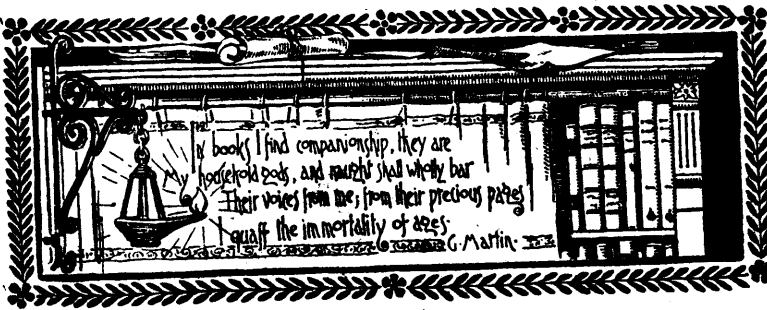 In books I find companionship, they are
My household gods, and naught shall wholly bar
Their voices from me; from their precious pages
I quaff the immortality of ages.
G. Martin.